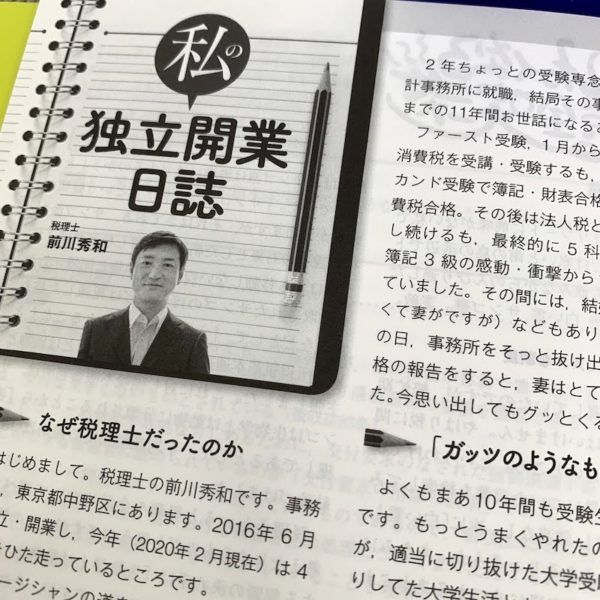 私の
独立開業
日誌
税理士
前川秀和
なぜ税理士だったのか
はじめまして。税理士の前川秀和です。事務
，東京都中野区にあります。2016年６月
立・開業し，今年（2020年２月現在）は４
ひた走っているところです。
ージシャンの道を
２年ちょっとの受験専念
計事務所に就職，結局その事
までの11年間お世話になると
ファースト受験，１月から
消費税を受講・受験するも，
カンド受験で簿記・財表合格
費税合格。その後は法人税と
し続けるも，最終的に５科
簿記３級の感動・衝撃から
ていました。その間には，結
くて妻がですが）などもあり
の日，事務所をそっと抜け出
格の報告をすると，妻はとて
た。今思い出してもグッとくる
「ガッツのようなも
よくもまあ10年間も受験生
です。もっとうまくやれたの
が，適当に切り抜けた大学受
りしてた大学生活